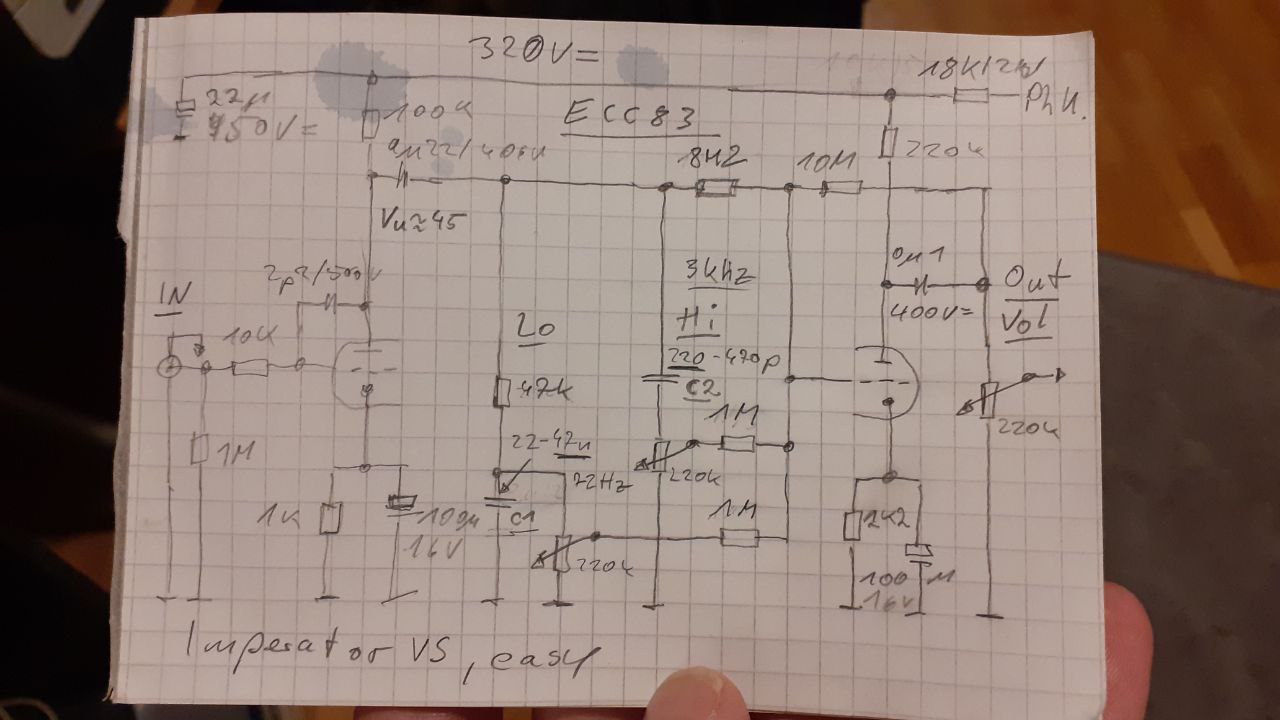 320V=
18K/2W
22µ
450V=
100K
ECC83
Ph U.
220K
0µ22/400V
8M2
10M
Vu≈45
2p2/500V
3kHz
0µ1
Out
IN
400V=
Vol
10K
Lo
Hi
220-470p
47K
C2
1M
220K
22-47n
1M
72Hz
220K
1K
100µ
C1
1M
2K2
16V
220K
100µ
16V
Imperator VS, easy